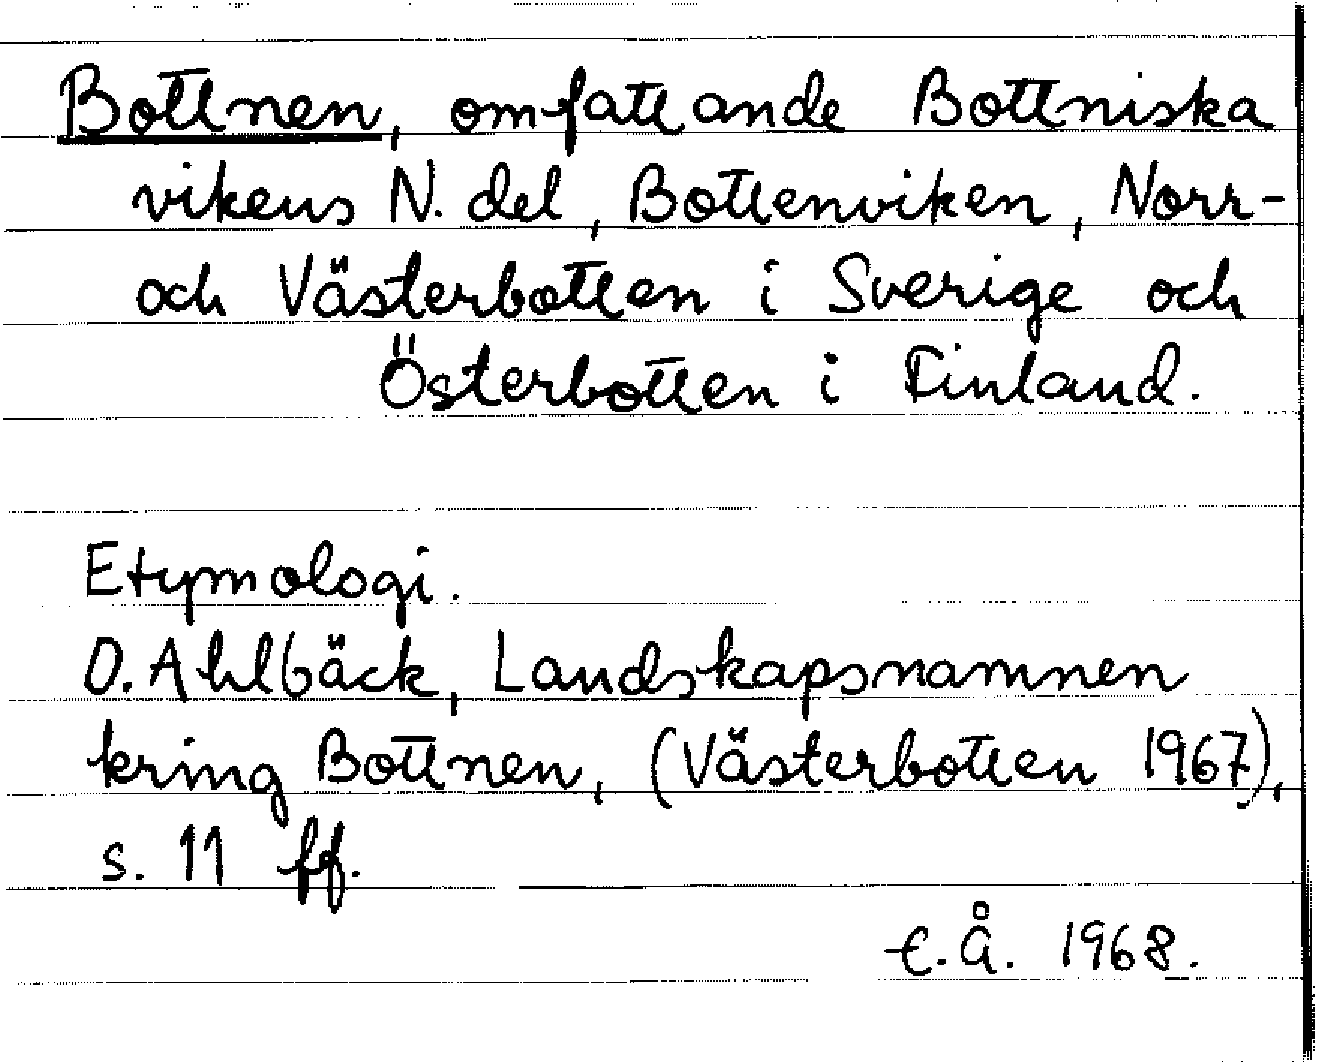 Bottnen, omfattande Bottniska
vikens N. del, Bottenviken, Norr-
och Västerbotten i Sverige och
Österbotten i Finland.
Etymologi.
O. Ahlbäck, Landskapsnamnen
kring Bottnen, (Västerbotten 1967),
s. 11 ff.
t.Å. 1968.